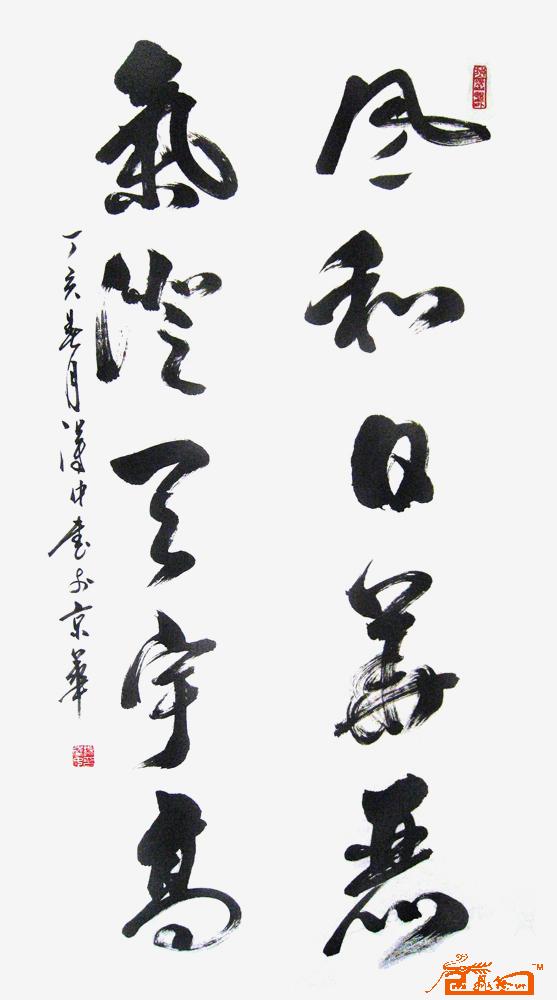 风和日
氣澄天宇高
丁亥春月漢中書於京華